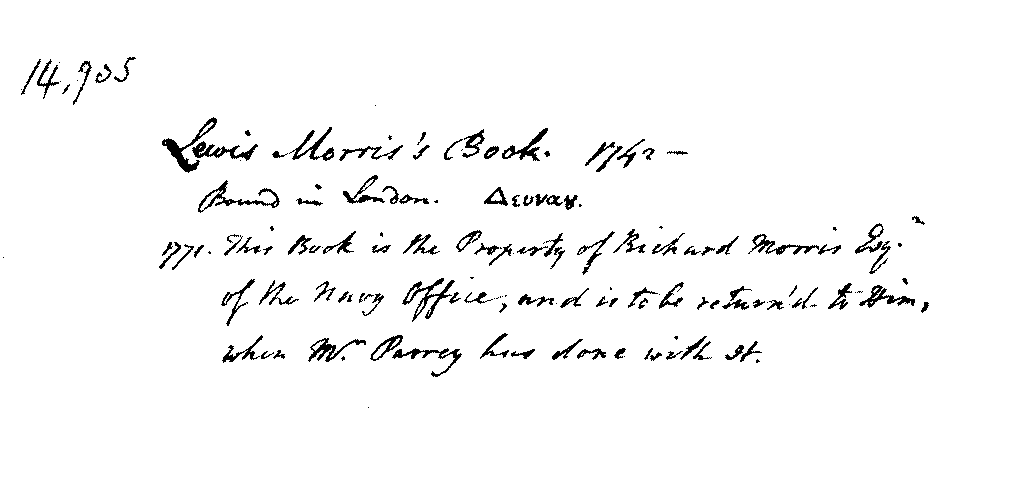 14,905
Lewis Morris's Book. 1742 —
Bound in London. Δευναȣ.
1771. This Book is the Property of Richard Morris Esqr.
of the Navy Office, and is to be return'd to Him,
when Mr. Parrey has done with It.